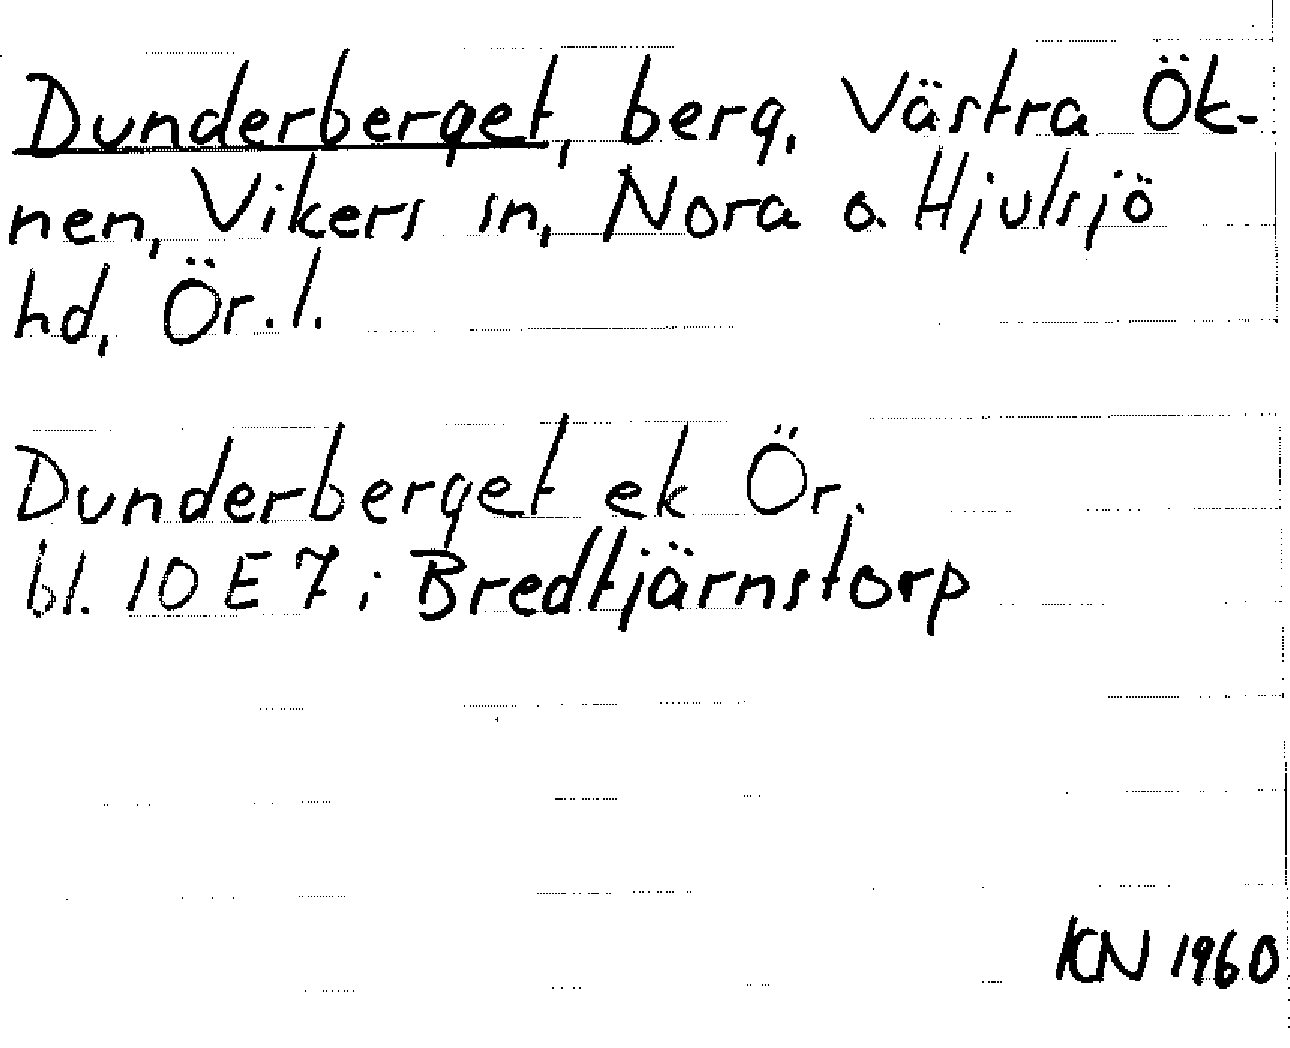 Dunderberget, berg, Västra Ök-
nen, Vikers sn, Nora o. Hjulsjö
hd, Ör. l.
Dunderberget ek Ör.
bl. 10 E 7 i Bredtjärnstorp
KN 1960